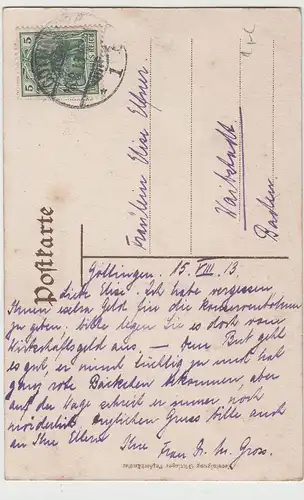 5
5
1
Postkarte
Fräulein Else Elsner
Waibstadt
Baden
Göttingen, 15. VIII. 13.
Liebe Else! Ich habe vergessen,
Ihnen extra Geld für die
zu geben. Bitte legen Sie es doch vom
Wirtschaftsgeld aus. — Dem Bub geht
es gut, er ist tüchtig und hat
ganz rote Bäckchen bekommen, aber
auf der Wage schreit er immer noch
mörderlich. Gruss bitte auch
an Ihre Eltern Ihre Frau Dr. M. Gross.